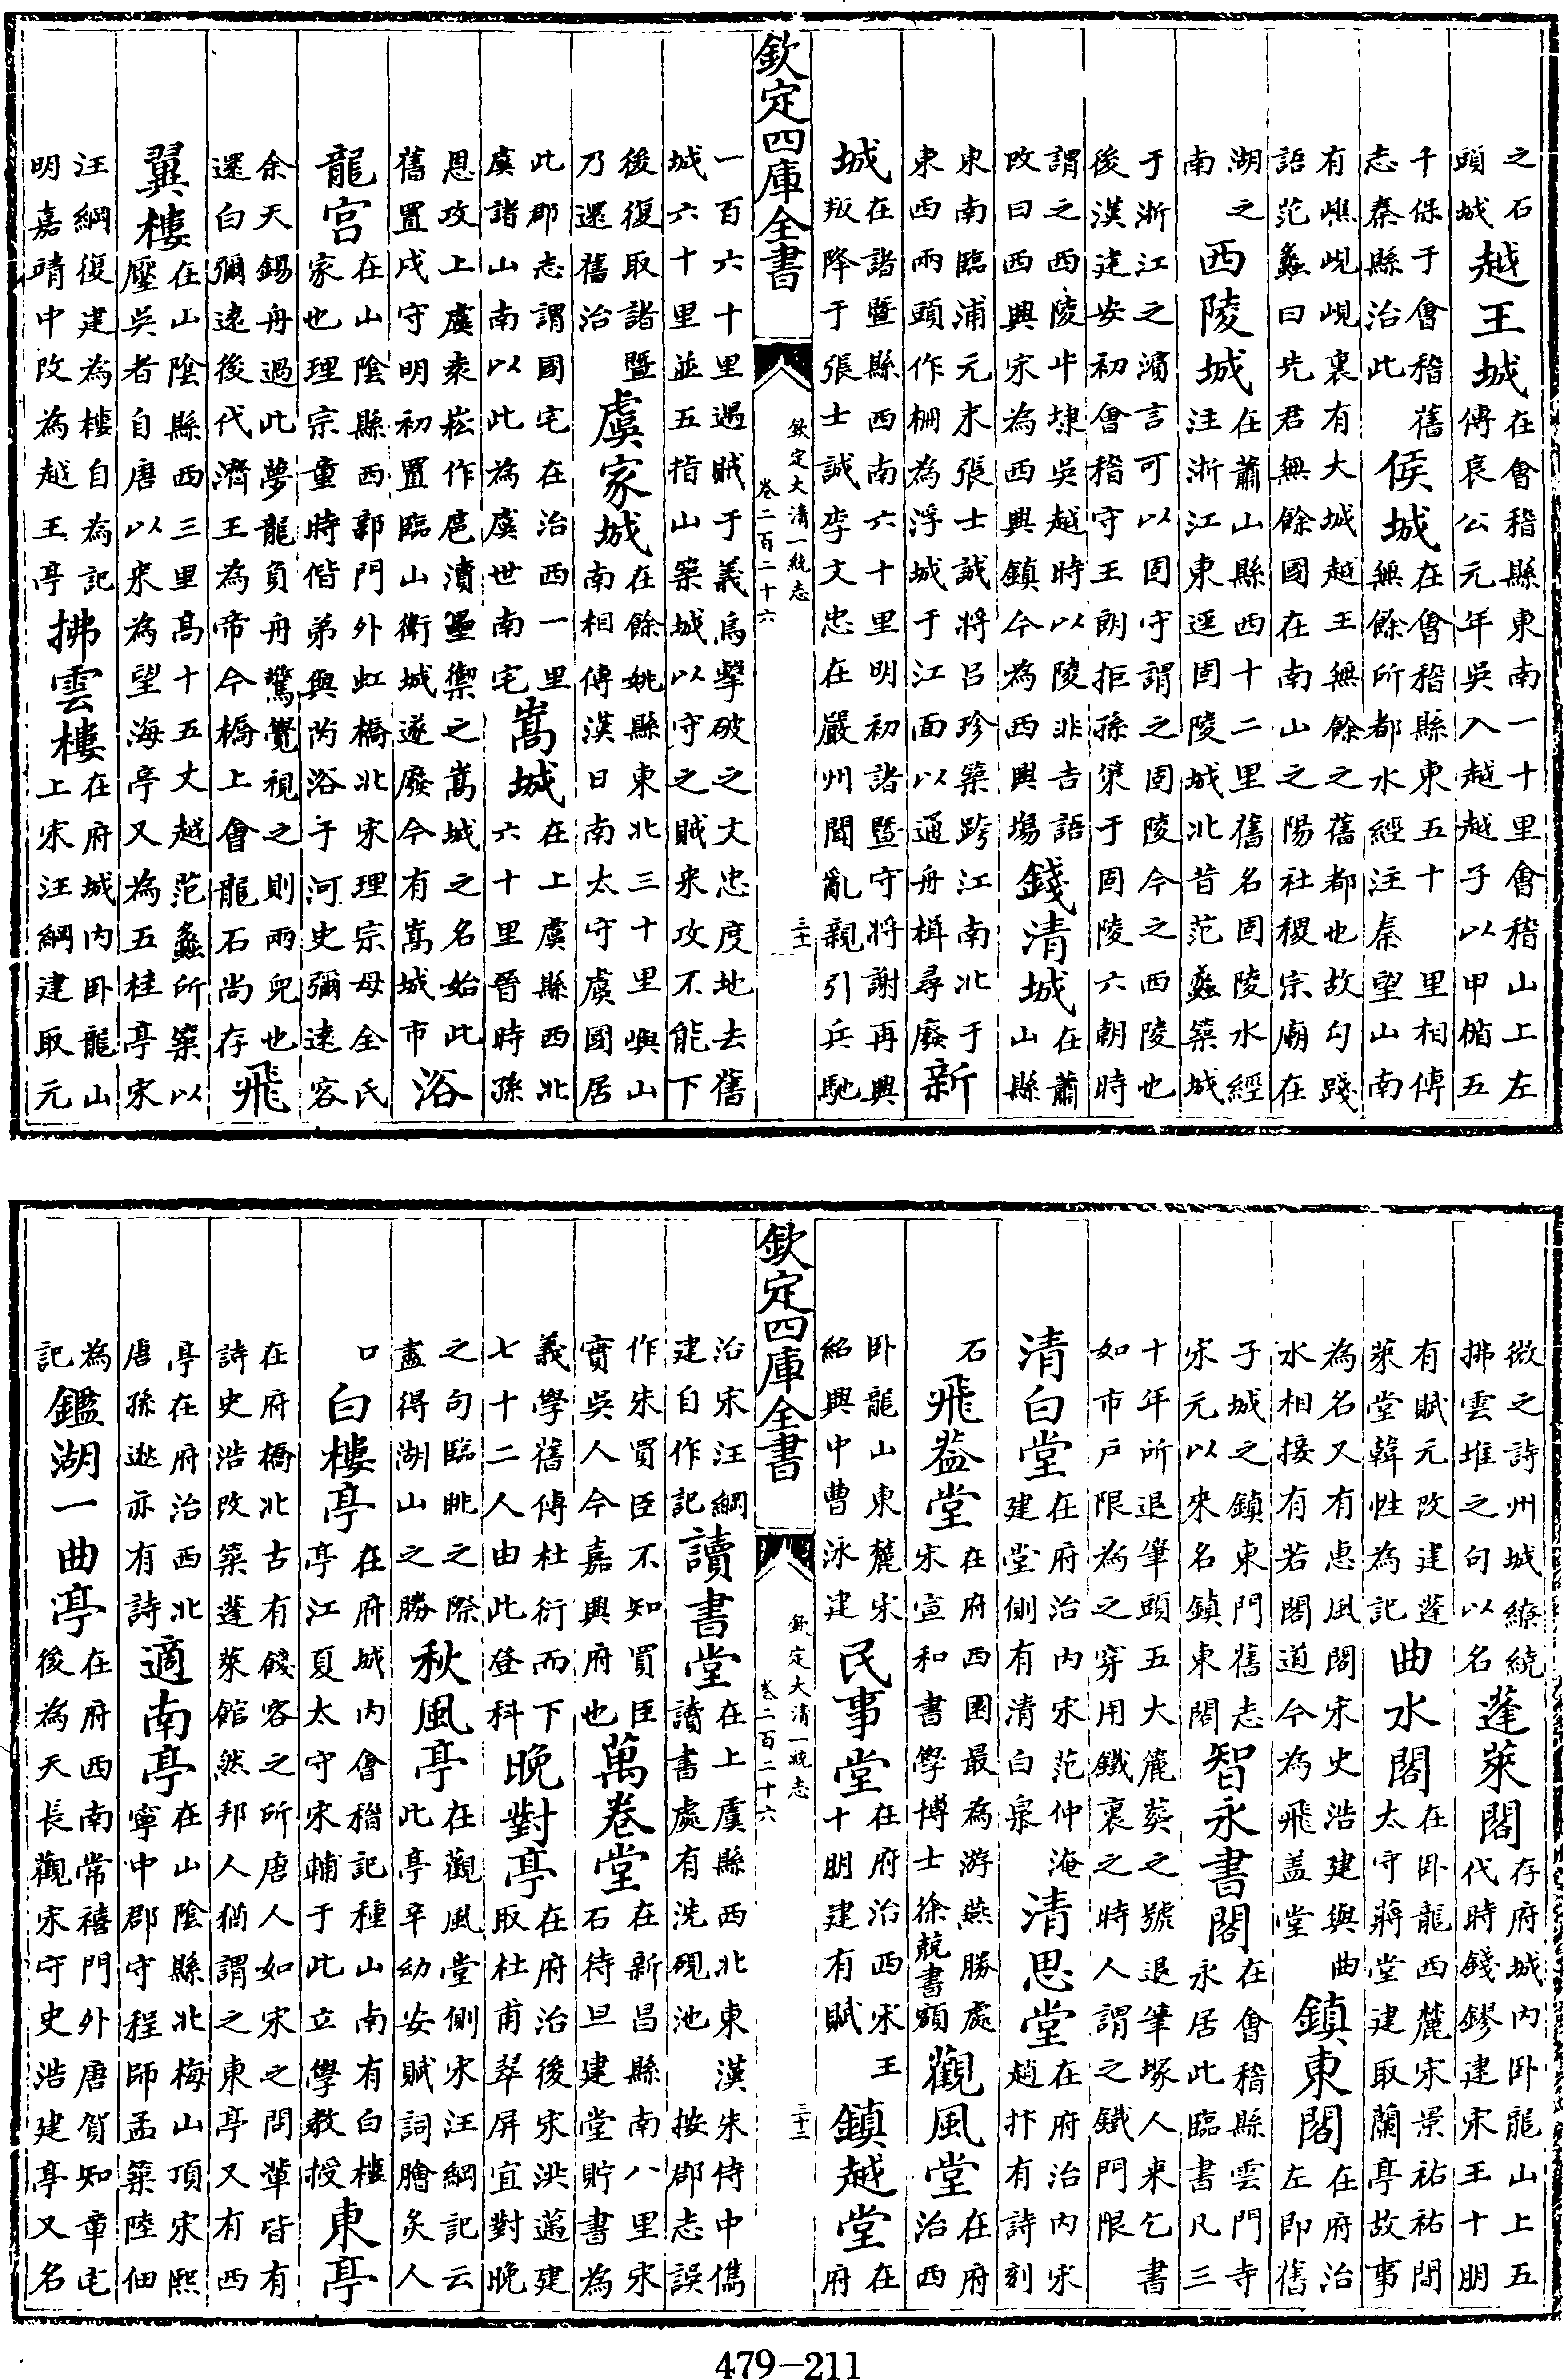 之石頭城越王城在會稽縣東南一十里會稽山上左傳哀公元年吳入越越子以甲楯五
千保于會稽舊志秦縣治此侯城在會稽縣東五十里相傳無餘所都水經注秦望山南
有嶕峴峴裏有大城越王無餘之舊都也故勾踐語范蠡曰先君無餘國在南山之陽社稷宗廟在
湖之南西陵城在蕭山縣西十二里舊名固陵水經注浙江東逕固陵城北昔范蠡築城
于浙江之濱言可以固守謂之固陵今之西陵也後漢建安初會稽守王朗拒孫策于固陵六朝時
謂之西陵牛埭吳越時以陵非吉語改曰西興宋為西興鎮今為西興塲錢清城在蕭山縣
東南臨浦元末張士誠將呂珍築跨江南北于東西兩頭作柵為浮城于江面以通舟楫尋廢新
城在諸暨縣西南六十里明初諸暨守將謝再興叛降于張士誠李文忠在嚴州聞亂親引兵馳
欽定四庫全書 欽定大清一統志 卷二百二十六 三十一
一百六十里遇賊于義烏擊破之大忠度地去舊城六十里並五指山築城以守之賊來攻不能下
後復取諸暨乃還舊治虞家城在餘姚縣東北三十里嶼山南相傳漢日南太守虞國居
此郡志謂國宅在治西一里虞諸山南以此為虞世南宅嵩城在上虞縣西北六十里晉時孫
恩攻上虞袁崧作扈瀆壘禦之嵩城之名始此舊置戍守明初置臨山衛城遂廢今有嵩城市浴
龍宮在山陰縣西郭門外虹橋北宋理宗母全氏家也理宗童時偕弟與芮浴于河史彌遠容
余天錫舟過此夢龍負舟驚覺視之則兩兒也還白彌遠後代濟王為帝今橋上會龍石尚存飛
翼樓在山陰縣西三里高十五丈越范蠡所築以壓吳者自唐以來為望海亭又為五桂亭宋
汪綱復建為樓自為記明嘉靖中改為越王亭拂雲樓在府城内卧龍山上宋汪綱建取元
微之詩州城繚繞拂雲堆之句以名蓬萊閣存府城内卧龍山上五代時錢鏐建宋王十朋
有賦元改建蓬萊堂韓性為記曲水閣在卧龍西麓宋景祐間太守蔣堂建取蘭亭故事
為名又有惠風閣宋史浩建與曲水相接有若閣道今為飛盖堂鎮東閣在府治左即舊
子城之鎮東門舊志宋元以來名鎮東閣智永書閣在會稽縣雲門寺永居此臨書凡三
十年所退筆頭五大簏葬之號退筆塚人來乞書如市戶限為之穿用鐵裹之時人謂之鐵門限
清白堂在府治内宋范仲淹建堂側有清白泉清思堂在府治内宋趙抃有詩刻
石飛葢堂在府西園最為游燕勝處宋宣和書學博士徐兢書額觀風堂在府治西
卧龍山東麓宋紹興中曹泳建民事堂在府治西宋王十朋建有賦鎮越堂在府
欽定四庫全書 欽定大清一統志 卷二百二十六 三十二
治宋汪綱建自作記讀書堂在上虞縣西北東漢朱侍中儁讀書處有洗硯池按郡志誤
作朱買臣不知買臣實吳人今嘉興府也萬卷堂在新昌縣南八里宋石待旦建堂貯書為
義學舊傳杜衍而下七十二人由此登科晚對亭在府治後宋洪邁建取杜甫翠屏宜對晚
之句臨眺之際盡得湖山之勝秋風亭在觀風堂側宋汪綱記云此亭辛幼安賦詞膾炙人
口白樓亭在府城内會稽記種山南有白樓亭江夏太守宋輔于此立學教授東亭
在府橋北古有餞客之所唐人如宋之問輩皆有詩史浩改築蓬萊館然邦人猶謂之東亭又有西
亭在府治西北唐孫逖亦有詩適南亭在山陰縣北梅山頂宋熙寧中郡守程師孟築陸佃
為記鑑湖一曲亭在府西南常禧門外唐賀知章宅後為天長觀宋守史浩建亭又名
479-211